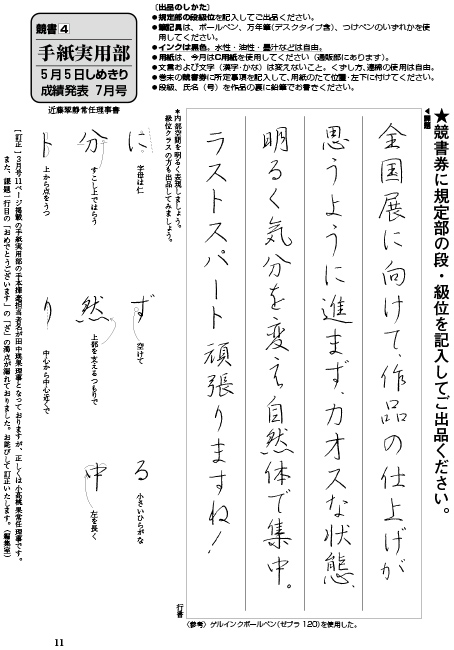 競書4
手紙実用部
5月5日しめきり
成績発表 7月号
近藤翠静常任理事書
〔出品のしかた〕
●規定部の段級位を記入してご出品ください。
●筆記具は、ボールペン、万年筆(デスクタイプ含)、つけペンのいずれかを使
用してください。
●インクは黒色。水性・油性・墨汁などは自由。
●用紙は、今月はC用紙を使用してください(通販部にあります)。
●文言および文字(漢字・かな)は変えないこと。くずし方、連綿の使用は自由。
●巻末の競書券に所定事項を記入して、用紙のたて位置・左下に付けてください。
●段級、氏名(号)を作品の裏に鉛筆でお書きください。
★競書券に規定部の段・級位を記入してご出品ください。
◀課題
全国展に向けて、作品の仕上げが
思うように進まず、カオスな状態、
明るく気分を変え自然体で集中。
ラストスパート頑張りますね!
行書
(参考)ゲルインクボールペン(ゼブラ1.20)を使用した。
*内部空間を明るく表現しましょう。
級位クラスの方も出品してみましょう。
に 字母は仁
ず 空けて
る 小さいひらがな
分 すこし上ではらう
然 上部を支えるつもりで
中 左を長く
ト 上から点をうつ
り 中心から中心近くで
〔訂正〕3月号11ページ掲載の手紙実用部の手本揮毫担当者名が田中瑛果理事となっておりますが、正しくは小高楓果常任理事です。
また、課題一行目の「おめでとうございます」の「ざ」の濁点が漏れておりました。お詫びして訂正いたします。(編集室)
11